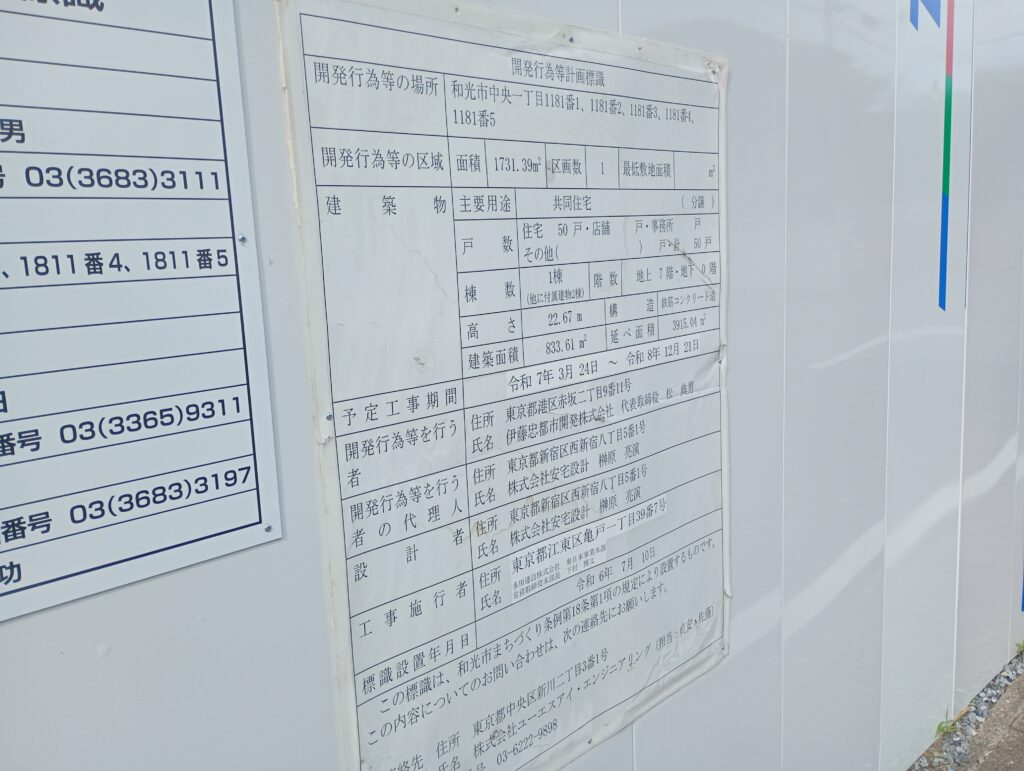 男
03(3683)3111
、1811番4、1811番5
番号 03(3365)9311
番号 03(3683)3197
功
開発行為等計画標識
開発行為等の場所 和光市中央一丁目1181番1、1181番2、1181番3、1181番4、
1181番5
開発行為等の区域 面積 1731.39㎡ 区画数 1 最低敷地面積 ㎡
建築物 主要用途 共同住宅 (分譲)
戸数 住宅 50戸・店舗 戸・事務所 戸
その他( ) 戸・計 50戸
棟数 1棟 階数 地上 7階・地下 0階
(他に付属建物2棟)
高さ 22.67 m 構造 鉄筋コンクリート造
建築面積 833.61 ㎡ 延べ面積 3915.04 ㎡
予定工事期間 令和 7年 3月 24日 ~ 令和 8年 12月 21日
開発行為等を行う者 住所 東京都港区赤坂二丁目9番11号
氏名 伊藤忠都市開発株式会社 代表取締役 松 典男
開発行為等を行う者の代理人 住所 東京都新宿区西新宿八丁目5番1号
氏名 株式会社安宅設計 榊原 亮演
設計者 住所 東京都新宿区西新宿八丁目5番1号
氏名 株式会社安宅設計 榊原 亮演
工事施行者 住所 東京都江東区亀戸一丁目39番7号
氏名 多田建設株式会社 東日本事業本部
常務取締役本部長 下村 博文
標識設置年月日 令和 6年 7月 10日
この標識は、和光市まちづくり条例第18条第1項の規定により設置するものです。
この内容についてのお問い合わせは、次の連絡先にお願いします。
連絡先 住所 東京都中央区新川二丁目3番1号
氏名 株式会社ユーエスアイ・エンジニアリング (担当:貞安・佐藤)
03-6222-9898